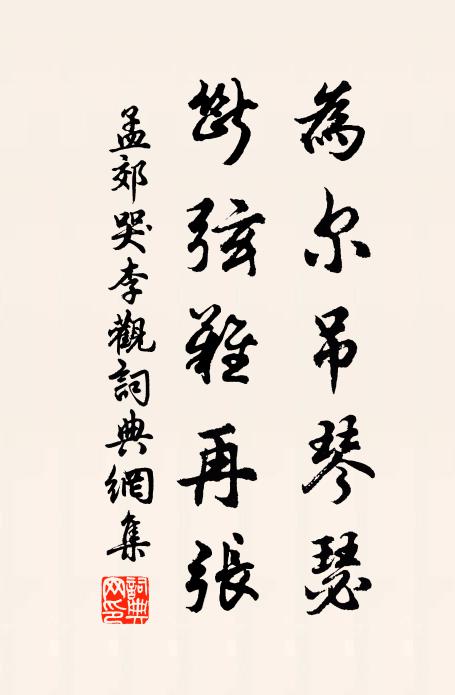 為尔吊琴瑟
斷弦難再張
孟郊哭李觀詞典網集
詞典
网印